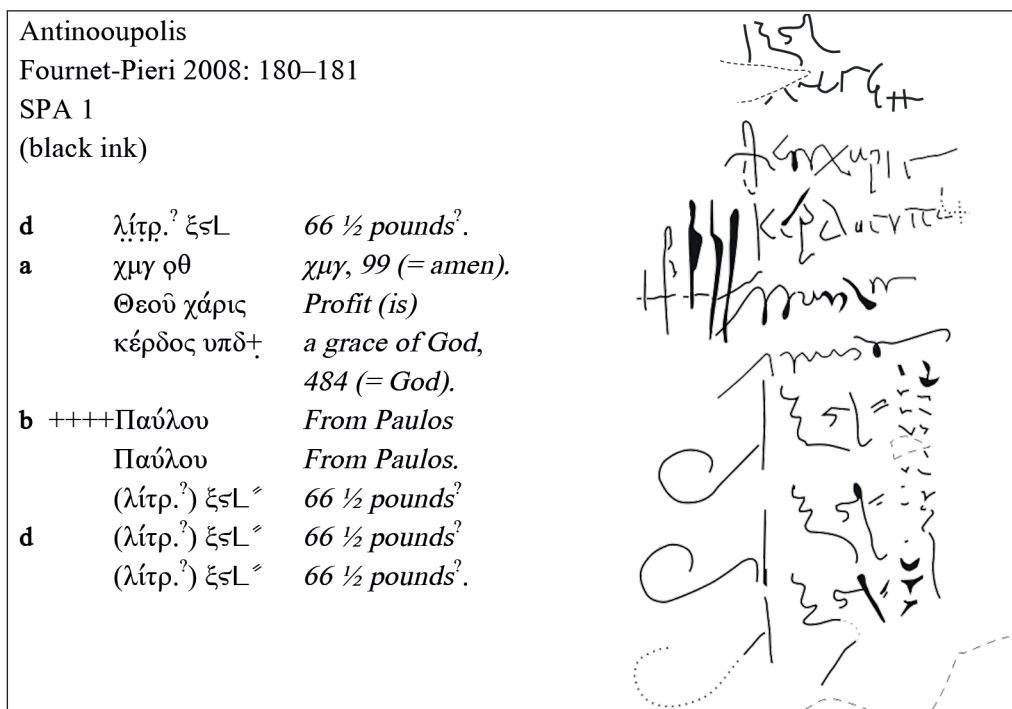 Antinooupolis
Fournet-Pieri 2008: 180–181
SPA 1
(black ink)
d λ̣ί̣τ̣ρ̣.? ξϛL 66 ½ pounds?.
a χμγ ϙθ χμγ, 99 (= amen).
Θεοῦ χάρις Profit (is)
κέρδος υπδ+̣ a grace of God,
484 (= God).
b ++++Παύλου From Paulos
Παύλου From Paulos.
(λίτρ.?) ξϛL〃 66 ½ pounds?
d (λίτρ.?) ξϛL〃 66 ½ pounds?
(λίτρ.?) ξϛL〃 66 ½ pounds?.